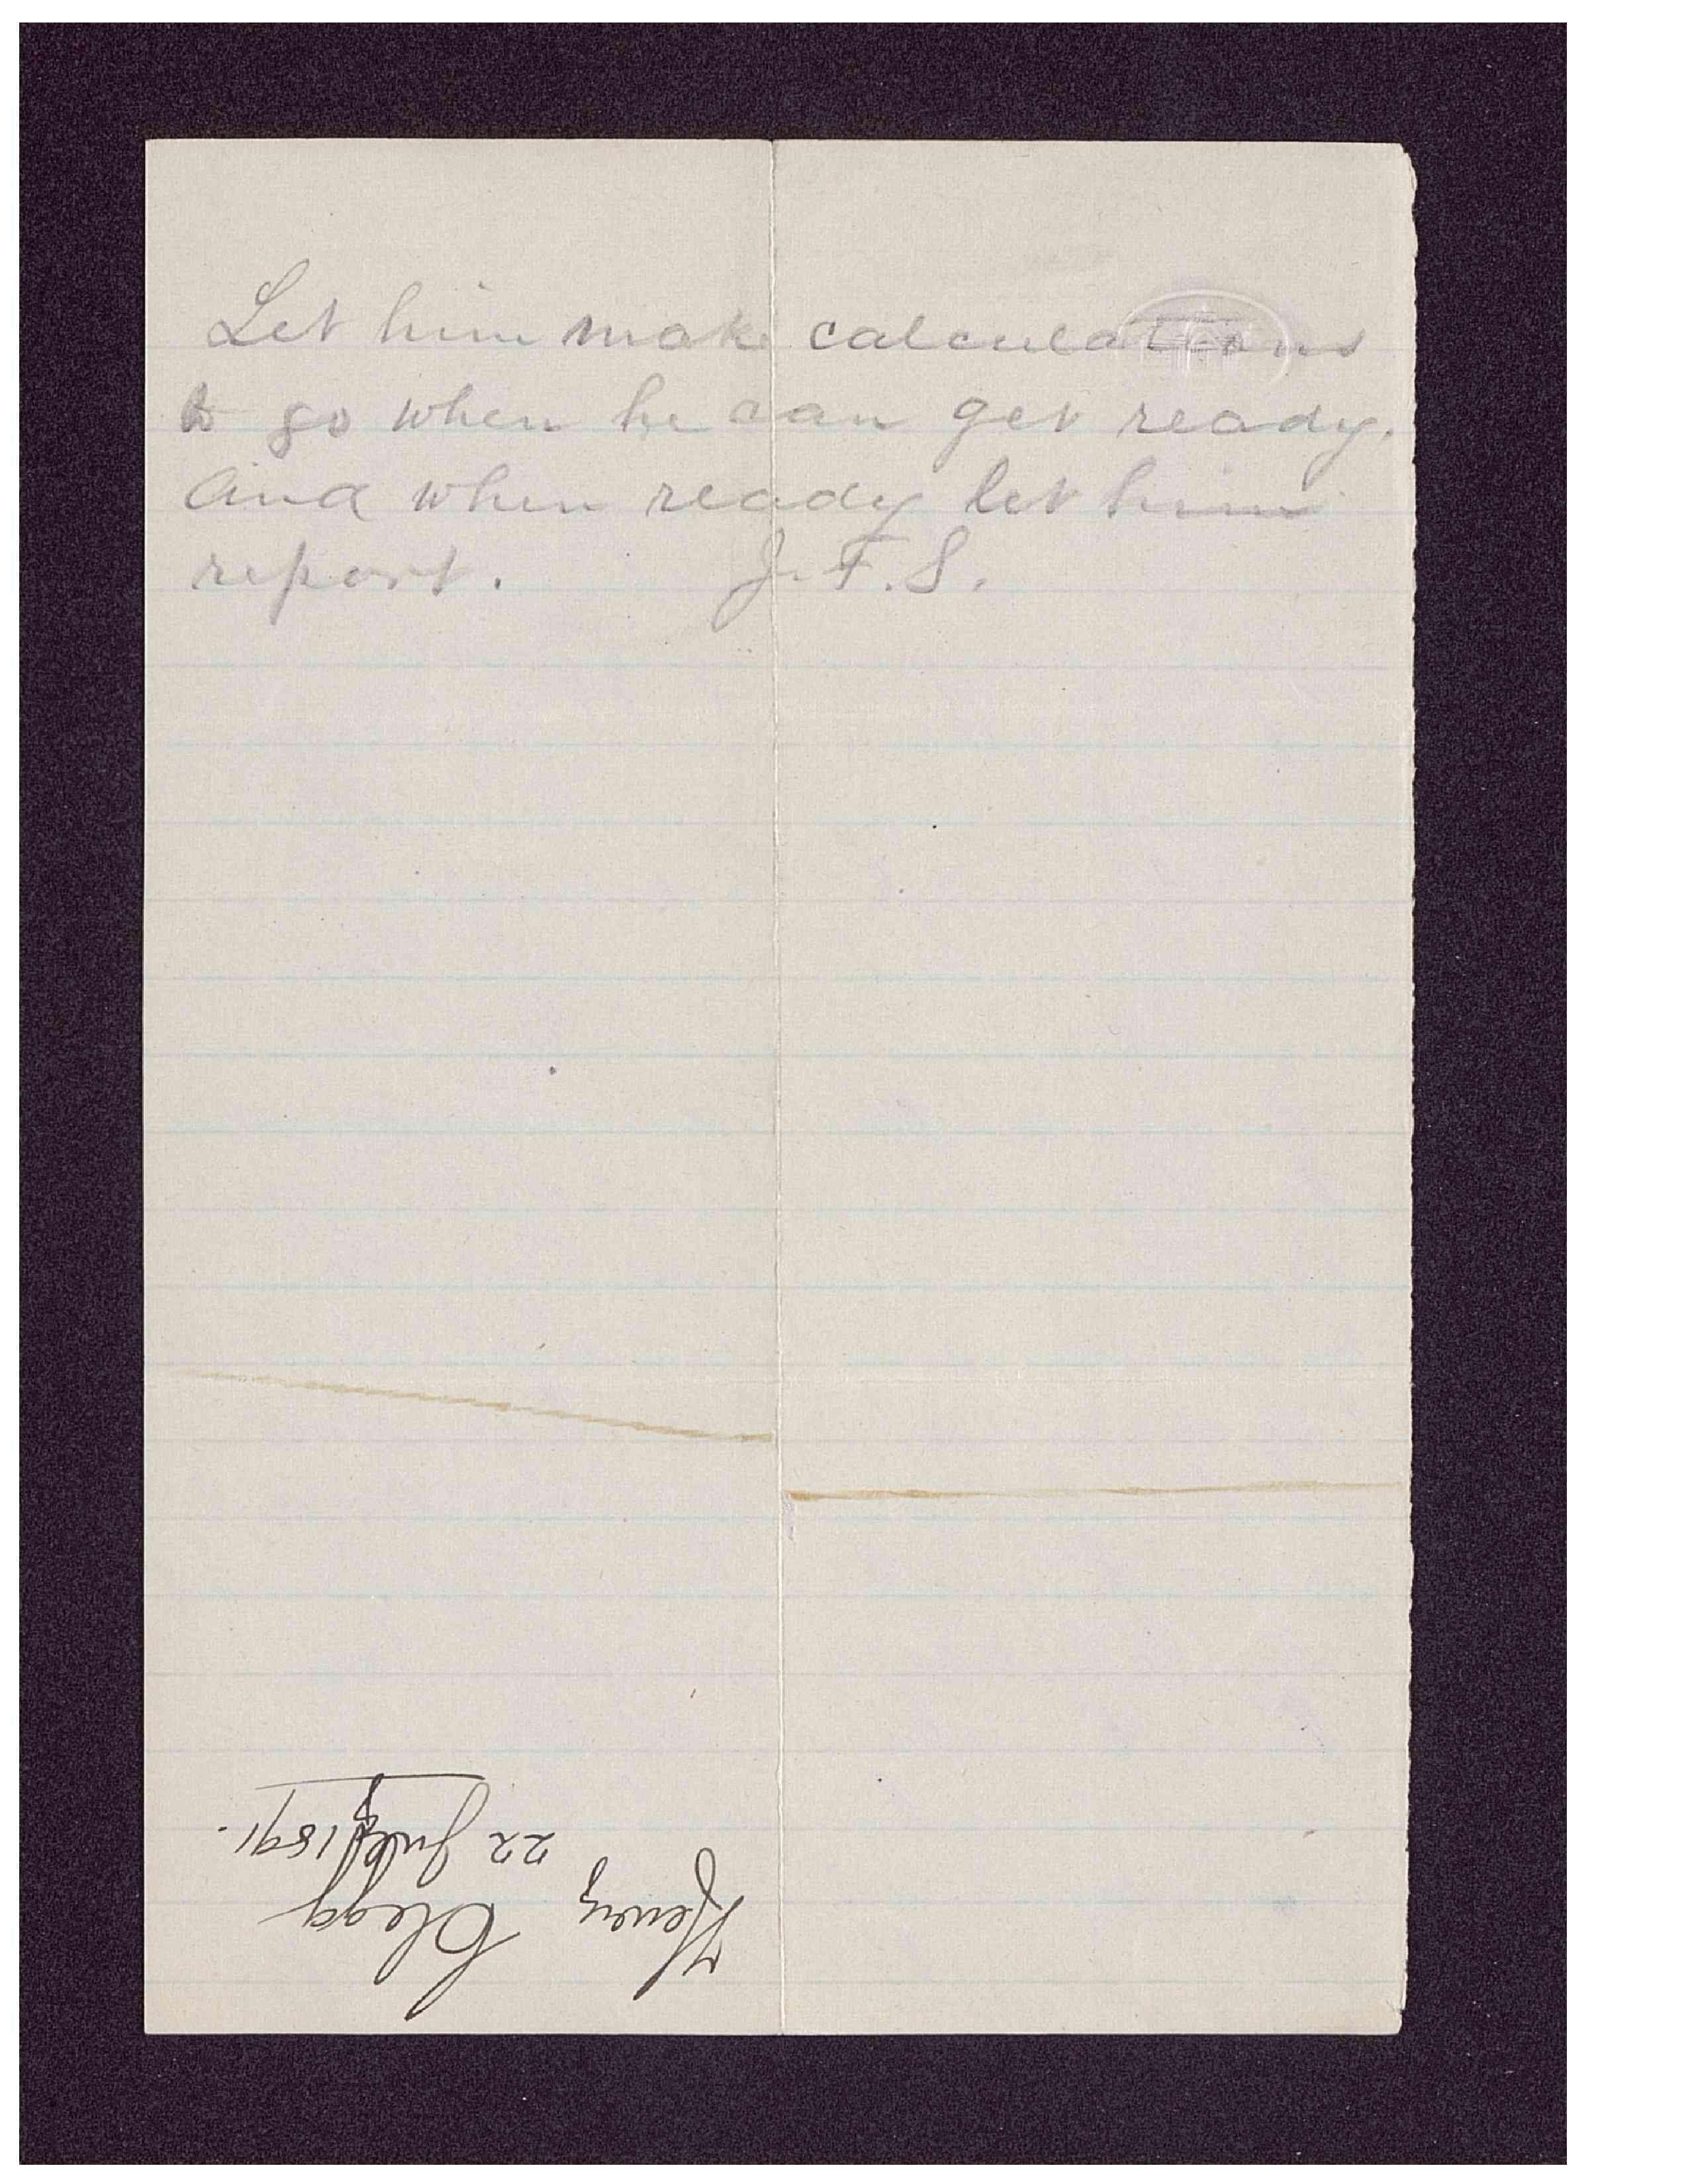 Let him make calculations
to go when he can get ready.
And when ready let him
report. J. F. S.
Henry Clegg
22 July 1891.